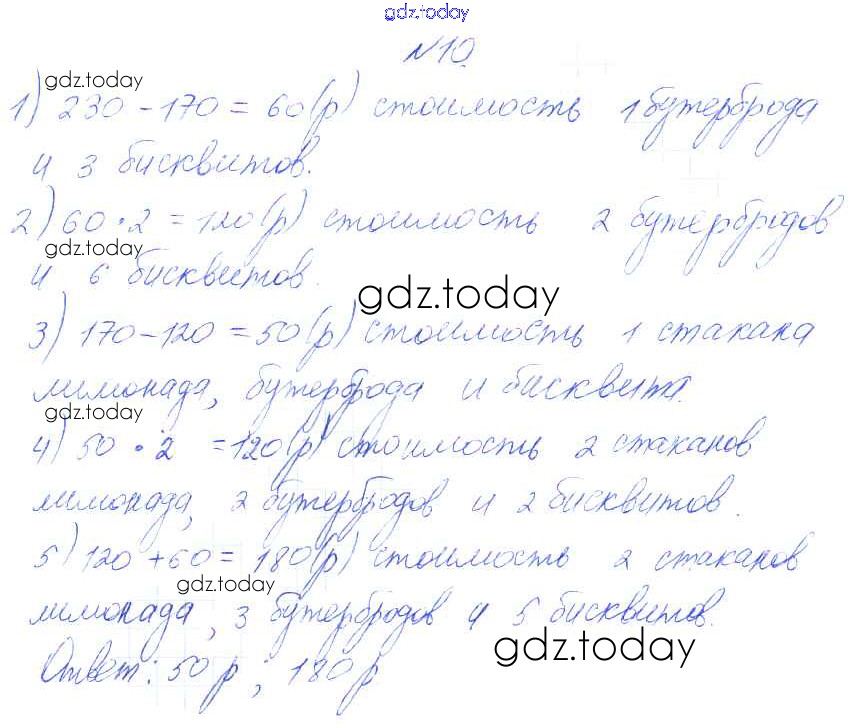 gdz.today
№10.
gdz.today
1) 230 - 170 = 60(р) стоимость 1 бутерброда
и 3 бисквитов.
2) 60 · 2 = 120(р) стоимость 2 бутербродов
gdz.today
и 6 бисквитов.
gdz.today
3) 170 - 120 = 50(р) стоимость 1 стакана
лимонада, бутерброда и бисквита.
gdz.today
4) 50 · 2 = 120(р) стоимость 2 стаканов
лимонада, 2 бутербродов и 2 бисквитов.
5) 120 + 60 = 180(р) стоимость 2 стаканов
gdz.today
лимонада, 3 бутербродов и 5 бисквитов.
gdz.today
Ответ: 50 р; 180 р